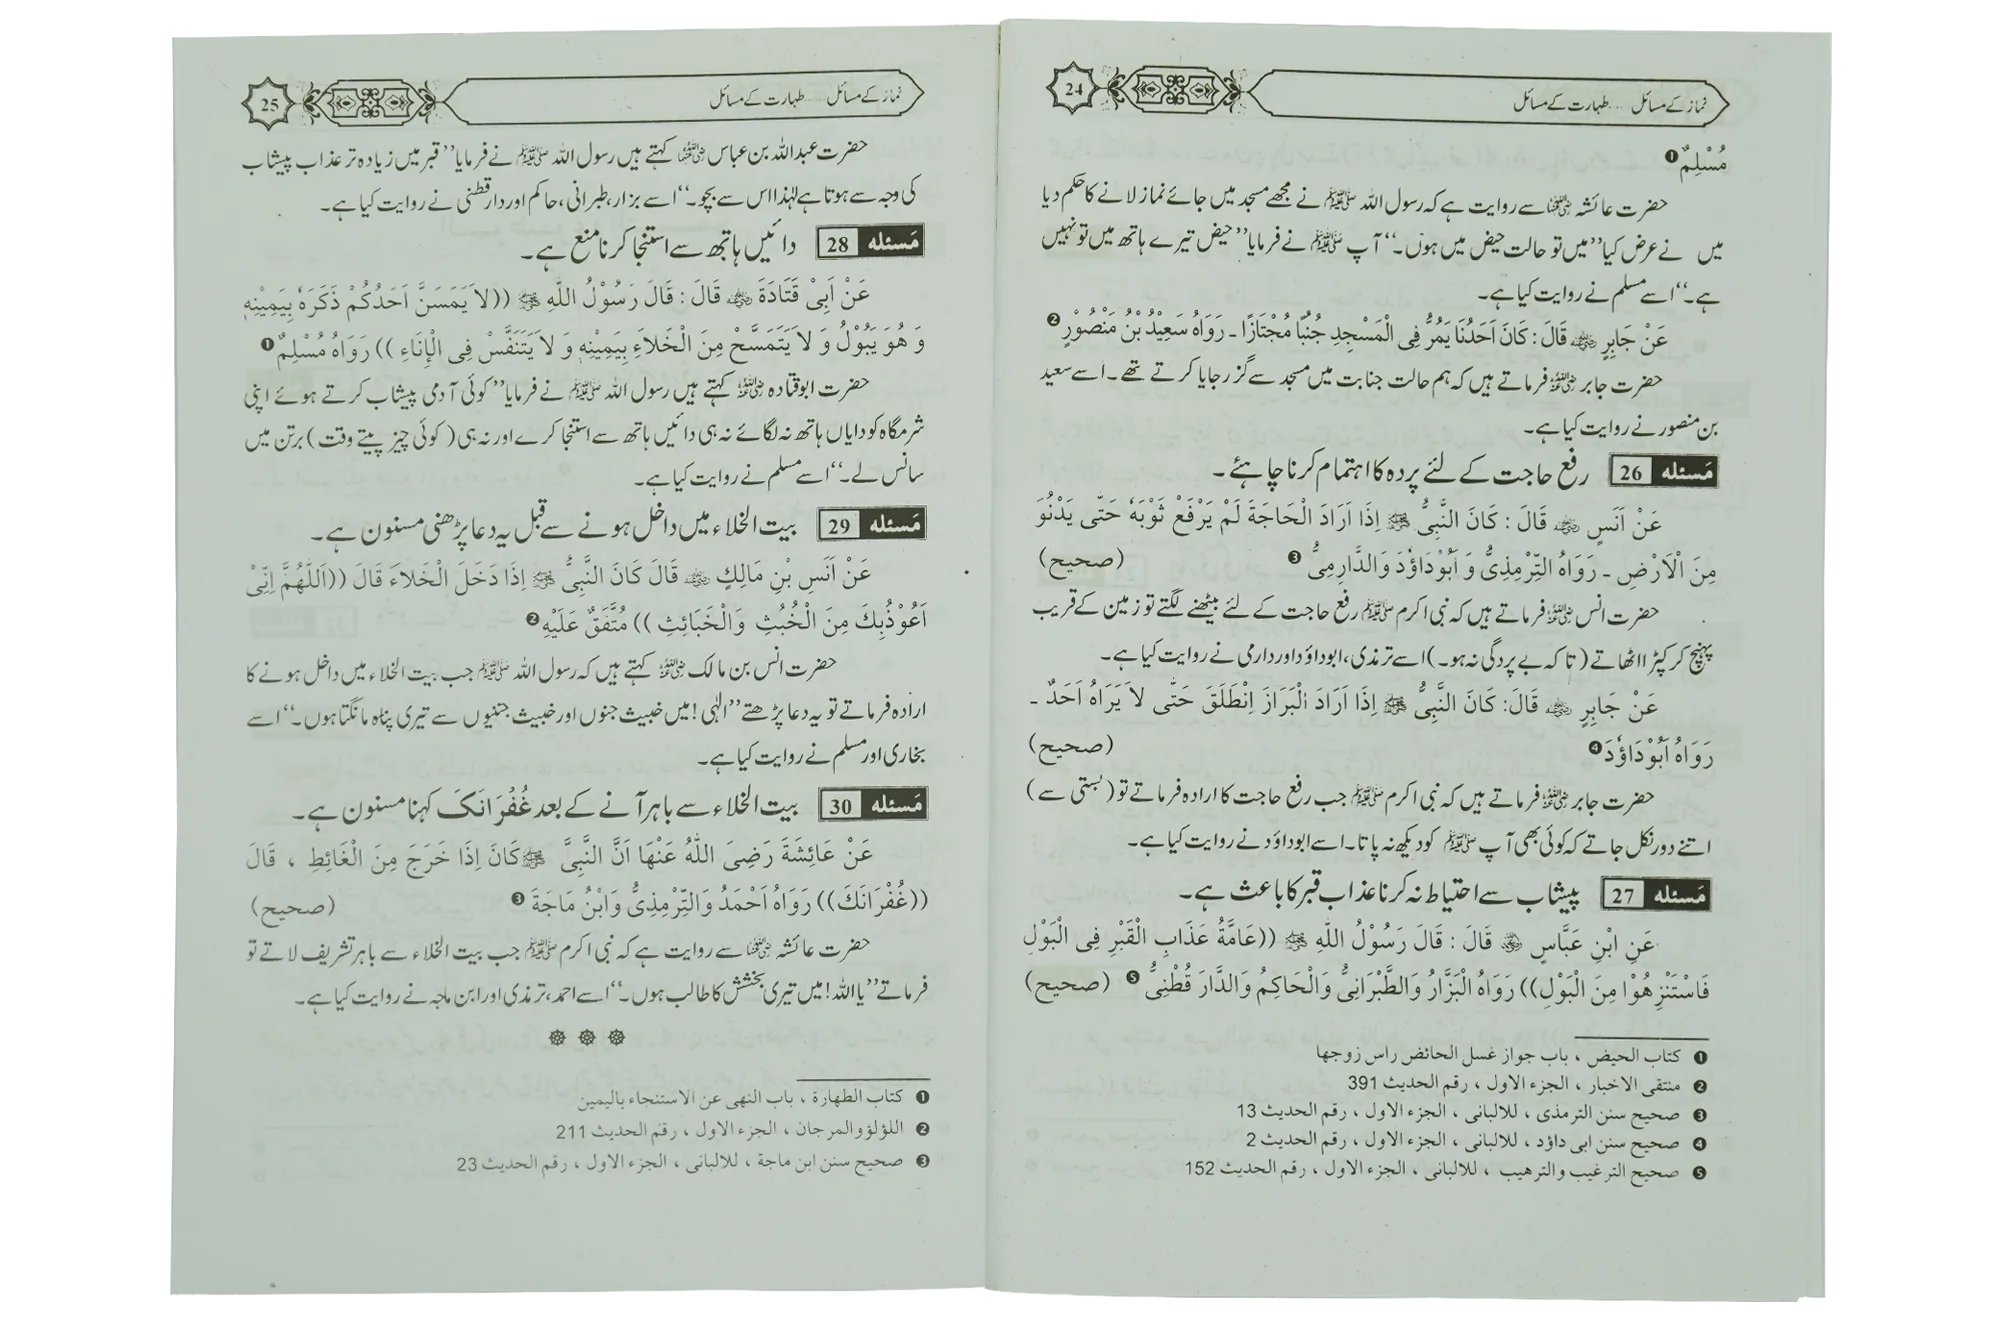 نماز کے مسائل ..... طہارت کے مسائل
24
مُسْلِمٌ ❶
حضرت عائشہ رضی اللہ عنہا سے روایت ہے کہ رسول اللہ ﷺ نے مجھے مسجد میں جائے نماز لانے کا حکم دیا
میں نے عرض کیا ’’میں تو حالت حیض میں ہوں۔‘‘ آپ ﷺ نے فرمایا ’’حیض تیرے ہاتھ میں تو نہیں
ہے۔‘‘ اسے مسلم نے روایت کیا ہے۔
عَنْ جَابِرٍ رضی اللہ عنہ قَالَ : كَانَ اَحَدُنَا يَمُرُّ فِى الْمَسْجِدِ جُنُبًا مُجْتَازًا ۔ رَوَاهُ سَعِيْدُ بْنُ مَنْصُوْرٍ ❷
حضرت جابر رضی اللہ عنہ فرماتے ہیں کہ ہم حالت جنابت میں مسجد سے گزر جایا کرتے تھے۔ اسے سعید
بن منصور نے روایت کیا ہے۔
مَسئله 26 رفع حاجت کے لئے پردہ کا اہتمام کرنا چاہئے۔
عَنْ اَنَسٍ رضی اللہ عنہ قَالَ : كَانَ النَّبِىُّ ﷺ اِذَا اَرَادَ الْحَاجَةَ لَمْ يَرْفَعْ ثَوْبَهُ حَتّٰى يَدْنُوَ
مِنَ الْاَرْضِ ۔ رَوَاهُ التِّرْمِذِىُّ وَ اَبُوْدَاؤُدَ وَالدَّارِمِىُّ ❸ (صحيح)
حضرت انس رضی اللہ عنہ فرماتے ہیں کہ نبی اکرم ﷺ رفع حاجت کے لئے بیٹھنے لگتے تو زمین کے قریب
پہنچ کر کپڑا اٹھاتے (تاکہ بے پردگی نہ ہو۔) اسے ترمذی، ابوداؤد اور دارمی نے روایت کیا ہے۔
عَنْ جَابِرٍ رضی اللہ عنہ قَالَ : كَانَ النَّبِىُّ ﷺ اِذَا اَرَادَ الْبَرَازَ اِنْطَلَقَ حَتّٰى لاَ يَرَاهُ اَحَدٌ ۔
رَوَاهُ اَبُوْدَاؤُدَ ❹ (صحيح)
حضرت جابر رضی اللہ عنہ فرماتے ہیں کہ نبی اکرم ﷺ جب رفع حاجت کا ارادہ فرماتے تو (بستی سے)
اتنے دور نکل جاتے کہ کوئی بھی آپ ﷺ کو دیکھ نہ پاتا۔ اسے ابوداؤد نے روایت کیا ہے۔
مَسئله 27 پیشاب سے احتیاط نہ کرنا عذاب قبر کا باعث ہے۔
عَنِ ابْنِ عَبَّاسٍ رضی اللہ عنہما قَالَ : قَالَ رَسُوْلُ اللّٰهِ ﷺ ((عَامَّةُ عَذَابِ الْقَبْرِ فِى الْبَوْلِ
فَاسْتَنْزِهُوْا مِنَ الْبَوْلِ)) رَوَاهُ الْبَزَّارُ وَالطَّبْرَانِىُّ وَالْحَاكِمُ وَالدَّارَ قُطْنِىُّ ❺ (صحيح)
❶ كتاب الحيض ، باب جواز غسل الحائض راس زوجها
❷ منتقى الاخبار ، الجزء الاول ، رقم الحديث 391
❸ صحيح سنن الترمذى ، للالبانى ، الجزء الاول ، رقم الحديث 13
❹ صحيح سنن ابى داؤد ، للالبانى ، الجزء الاول ، رقم الحديث 2
❺ صحيح الترغيب والترهيب ، للالبانى ، الجزء الاول ، رقم الحديث 152
نماز کے مسائل ..... طہارت کے مسائل
25
حضرت عبداللہ بن عباس رضی اللہ عنہما کہتے ہیں رسول اللہ ﷺ نے فرمایا ’’قبر میں زیادہ تر عذاب پیشاب
کی وجہ سے ہوتا ہے لہٰذا اس سے بچو۔‘‘ اسے بزار، طبرانی، حاکم اور دارقطنی نے روایت کیا ہے۔
مَسئله 28 دائیں ہاتھ سے استنجا کرنا منع ہے۔
عَنْ اَبِىْ قَتَادَةَ رضی اللہ عنہ قَالَ : قَالَ رَسُوْلُ اللّٰهِ ﷺ ((لاَ يَمَسَنَّ اَحَدُكُمْ ذَكَرَهُ بِيَمِيْنِهٖ
وَ هُوَ يَبُوْلُ وَ لاَ يَتَمَسَّحْ مِنَ الْخَلاَءِ بِيَمِيْنِهٖ وَ لاَ يَتَنَفَّسْ فِى الْإِنَاءِ )) رَوَاهُ مُسْلِمٌ ❶
حضرت ابوقتادہ رضی اللہ عنہ کہتے ہیں رسول اللہ ﷺ نے فرمایا ’’کوئی آدمی پیشاب کرتے ہوئے اپنی
شرمگاہ کو دایاں ہاتھ نہ لگائے نہ ہی دائیں ہاتھ سے استنجا کرے اور نہ ہی (کوئی چیز پیتے وقت) برتن میں
سانس لے۔‘‘ اسے مسلم نے روایت کیا ہے۔
مَسئله 29 بیت الخلاء میں داخل ہونے سے قبل یہ دعا پڑھنی مسنون ہے۔
عَنْ اَنَسِ بْنِ مَالِكٍ رضی اللہ عنہ قَالَ كَانَ النَّبِىُّ ﷺ اِذَا دَخَلَ الْخَلاَءَ قَالَ ((اَللّٰهُمَّ اِنِّىْ
اَعُوْذُبِكَ مِنَ الْخُبُثِ وَالْخَبَائِثِ )) مُتَّفَقٌ عَلَيْهِ ❷
حضرت انس بن مالک رضی اللہ عنہ کہتے ہیں کہ رسول اللہ ﷺ جب بیت الخلاء میں داخل ہونے کا
ارادہ فرماتے تو یہ دعا پڑھتے ’’الٰہی! میں خبیث جنوں اور خبیث جنیوں سے تیری پناہ مانگتا ہوں۔‘‘ اسے
بخاری اور مسلم نے روایت کیا ہے۔
مَسئله 30 بیت الخلاء سے باہر آنے کے بعد غُفْرَانَکَ کہنا مسنون ہے۔
عَنْ عَائِشَةَ رَضِىَ اللّٰهُ عَنْهَا اَنَّ النَّبِىَّ ﷺ كَانَ اِذَا خَرَجَ مِنَ الْغَائِطِ ، قَالَ
((غُفْرَانَكَ)) رَوَاهُ اَحْمَدُ وَالتِّرْمِذِىُّ وَابْنُ مَاجَةَ ❸ (صحيح)
حضرت عائشہ رضی اللہ عنہا سے روایت ہے کہ نبی اکرم ﷺ جب بیت الخلاء سے باہر تشریف لاتے تو
فرماتے ’’یا اللہ! میں تیری بخشش کا طالب ہوں۔‘‘ اسے احمد، ترمذی اور ابن ماجہ نے روایت کیا ہے۔
❶ كتاب الطهارة ، باب النهى عن الاستنجاء باليمين
❷ اللؤلؤ والمرجان ، الجزء الاول ، رقم الحديث 211
❸ صحيح سنن ابن ماجة ، للالبانى ، الجزء الاول ، رقم الحديث 23